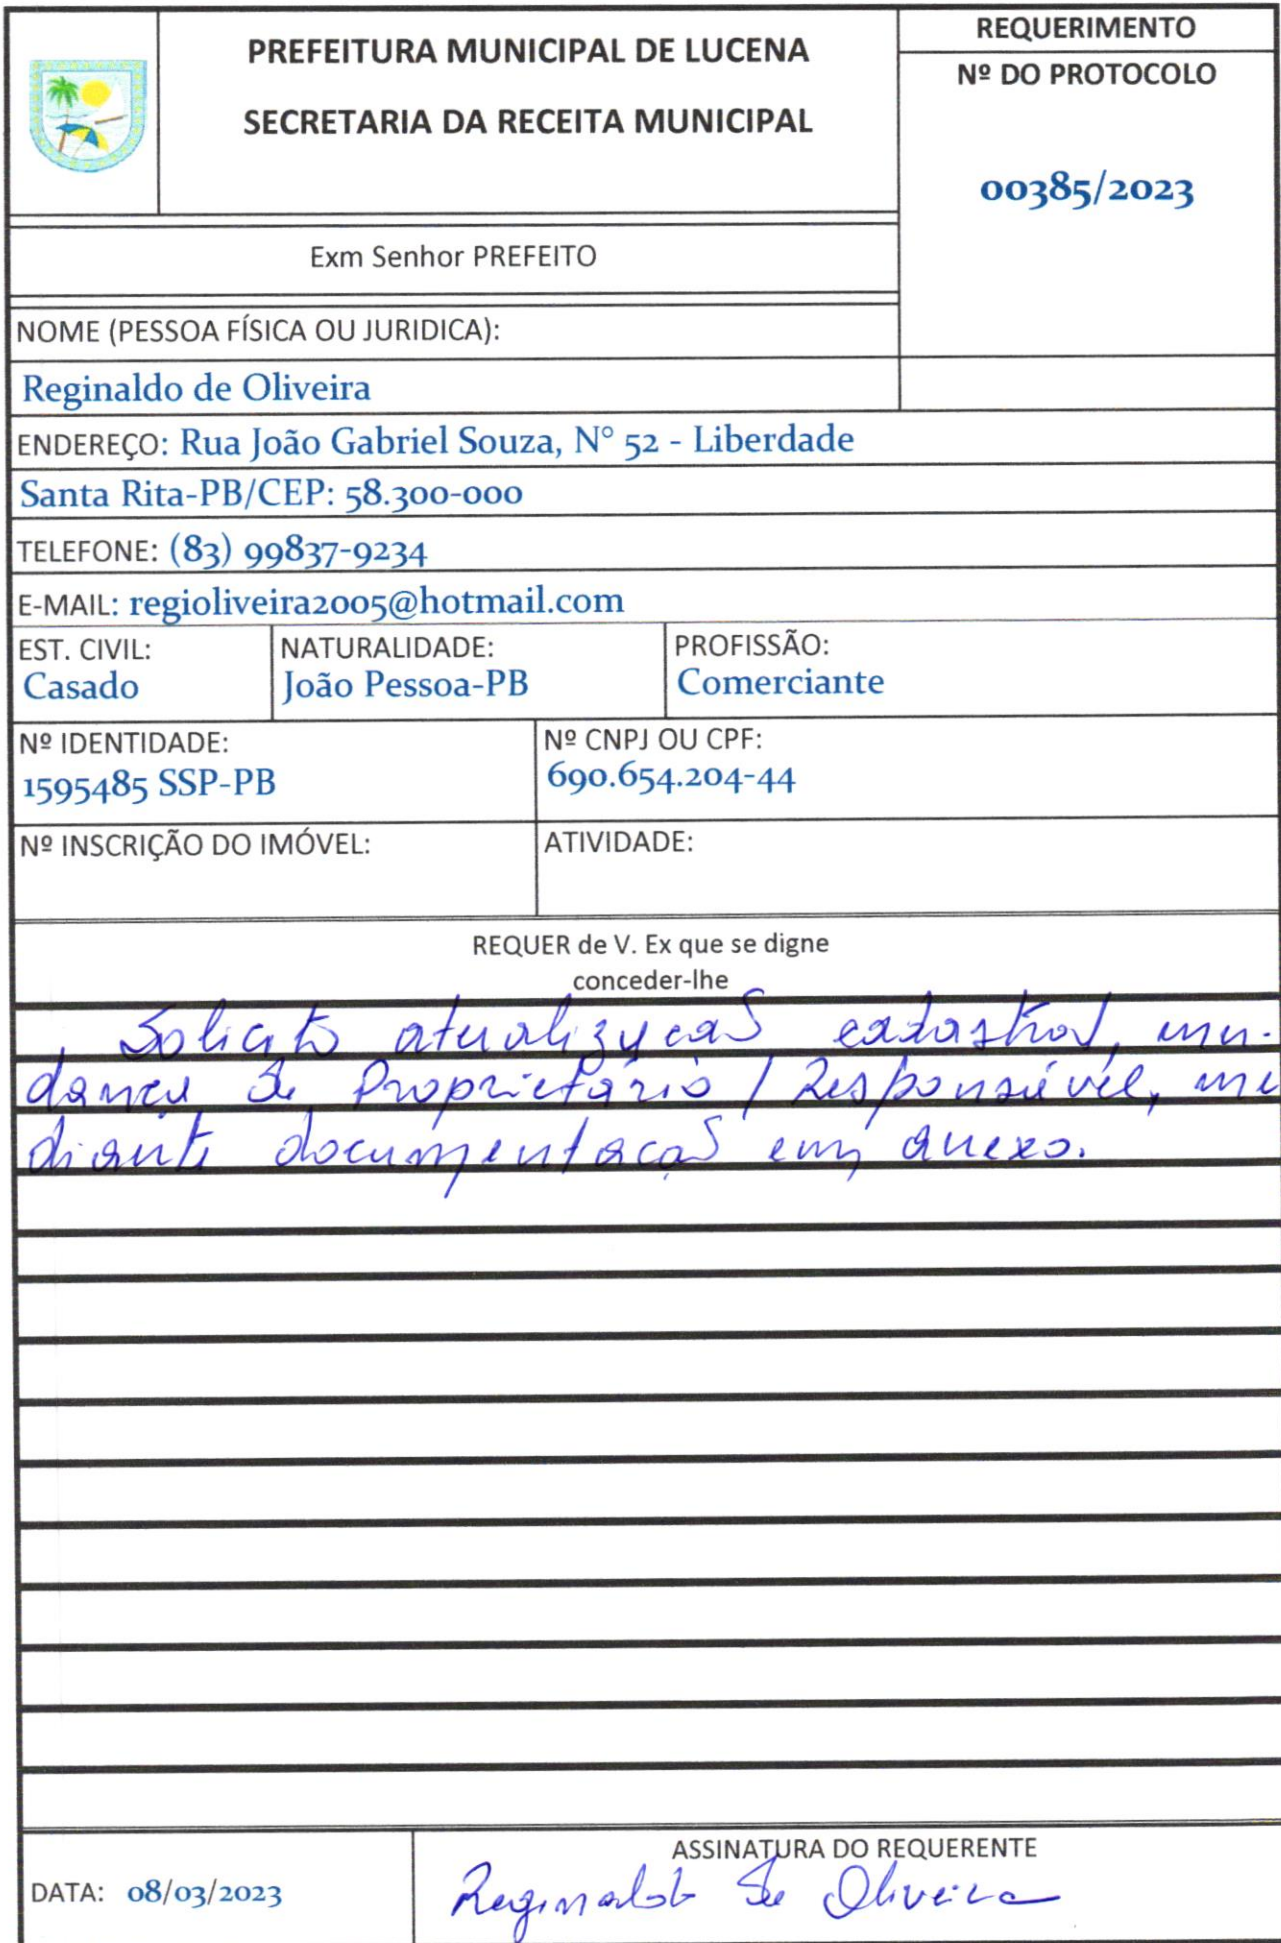 PREFEITURA MUNICIPAL DE LUCENA
SECRETARIA DA RECEITA MUNICIPAL
REQUERIMENTO
Nº DO PROTOCOLO
00385/2023
Exm Senhor PREFEITO
NOME (PESSOA FÍSICA OU JURIDICA):
Reginaldo de Oliveira
ENDEREÇO: Rua João Gabriel Souza, N° 52 - Liberdade
Santa Rita-PB/CEP: 58.300-000
TELEFONE: (83) 99837-9234
E-MAIL: regioliveira2005@hotmail.com
EST. CIVIL:
Casado
NATURALIDADE:
João Pessoa-PB
PROFISSÃO:
Comerciante
Nº IDENTIDADE:
1595485 SSP-PB
Nº CNPJ OU CPF:
690.654.204-44
Nº INSCRIÇÃO DO IMÓVEL:
ATIVIDADE:
REQUER de V. Ex que se digne
conceder-lhe
Solicito atualização cadastral, mu-
dança de Proprietário / Responsável, me
diante documentação em anexo.
DATA: 08/03/2023
ASSINATURA DO REQUERENTE
Reginaldo de Oliveira